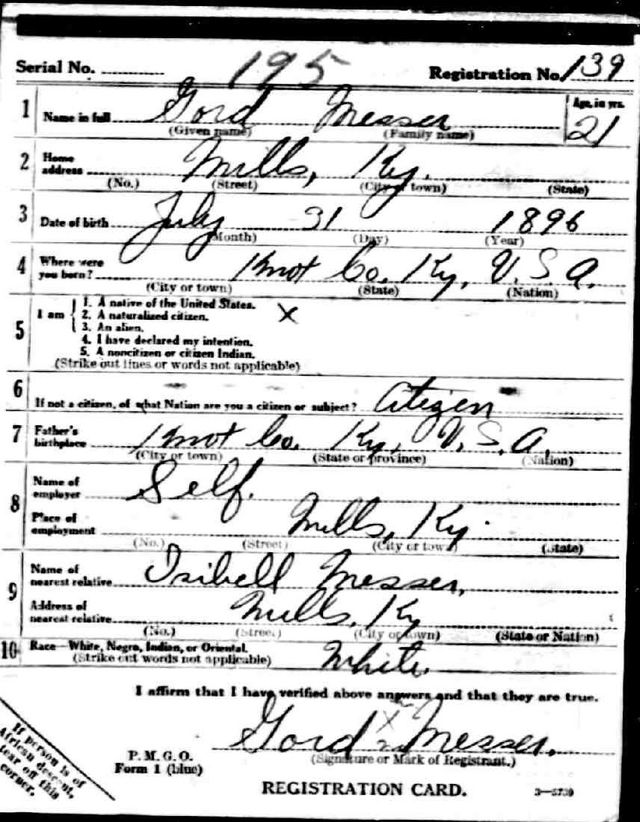 Serial No. 195 Registration No. 139
1 Name in full Gord Messer Age, in yrs. 21
(Given name) (Family name)
2 Home address Mills, Ky.
(No.) (Street) (City or town) (State)
3 Date of birth July 31 1896
(Month) (Day) (Year)
4 Where were you born? Knot Co. Ky, U.S.A.
(City or town) (State) (Nation)
5 I am
1. A native of the United States. X
2. A naturalized citizen.
3. An alien.
4. I have declared my intention.
5. A noncitizen or citizen Indian.
(Strike out lines or words not applicable)
6 If not a citizen, of what Nation are you a citizen or subject? Citizen
7 Father's birthplace Knot Co. Ky, U.S.A.
(City or town) (State or province) (Nation)
8 Name of employer Self.
Place of employment Mills, Ky.
(No.) (Street) (City or town) (State)
9 Name of nearest relative Isibell Messer,
Address of nearest relative Mills, Ky
(No.) (Street) (City or town) (State or Nation)
10 Race—White, Negro, Indian, or Oriental. White.
(Strike out words not applicable)
I affirm that I have verified above answers and that they are true.
Gord X Messer.
(Signature or Mark of Registrant.)
P. M. G. O.
Form 1 (blue)
REGISTRATION CARD. 3—5739
If person is of
African descent,
tear off this
corner.